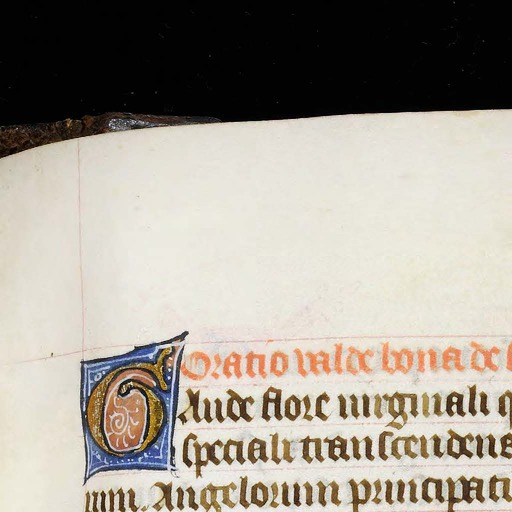 Oratio valde bona de
GAude flore uirginali q
speciali transcendens
um. Angelorum principati